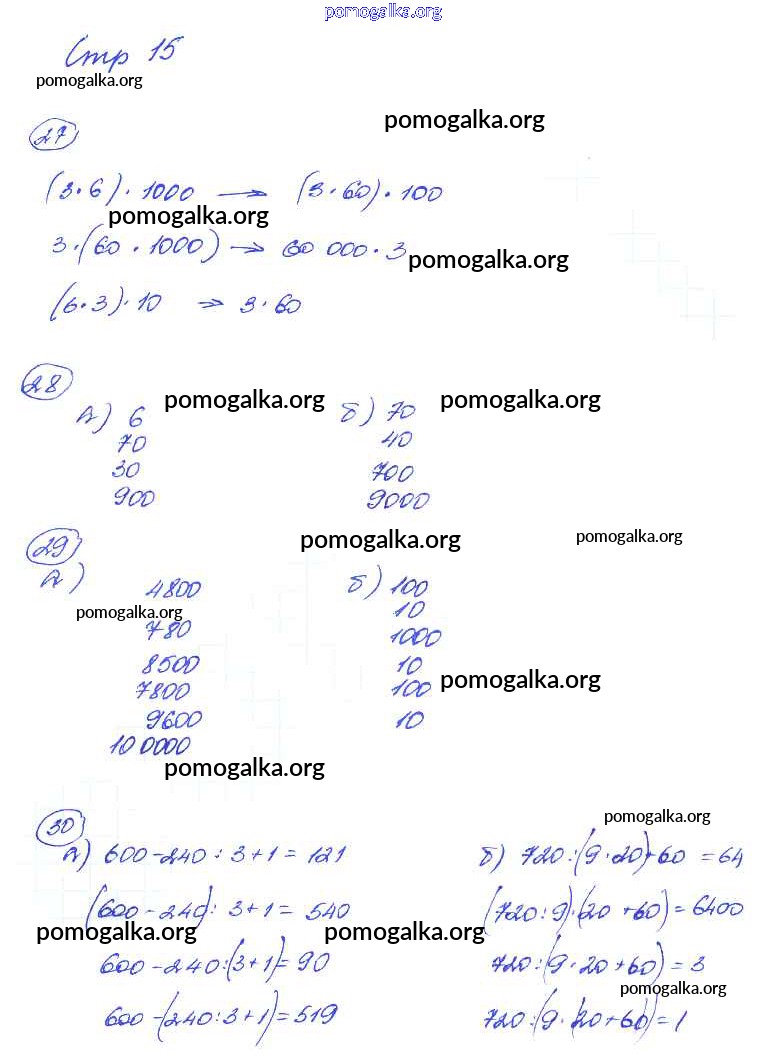 pomogalka.org
Стр 15
pomogalka.org
27
pomogalka.org
(3·6)·1000 → (3·60)·100
pomogalka.org
3·(60·1000) → 60 000·3
pomogalka.org
(6·3)·10 → 3·60
28
А) 6 pomogalka.org б) 70 pomogalka.org
70 40
30 700
900 9000
29 pomogalka.org pomogalka.org
А) 4800 б) 100
pomogalka.org 10
780 1000
8500 10
7800 100 pomogalka.org
9600 10
100000
pomogalka.org
30 pomogalka.org
А) 600-240:3+1=121 б) 720:(9·20)+60=64
(600-240):3+1=540 (720:9)·(20+60)=6400
pomogalka.org pomogalka.org
600-240:(3+1)=90 720:(9·20+60)=3
pomogalka.org
600-(240:3+1)=519 720:(9·(20+60))=1